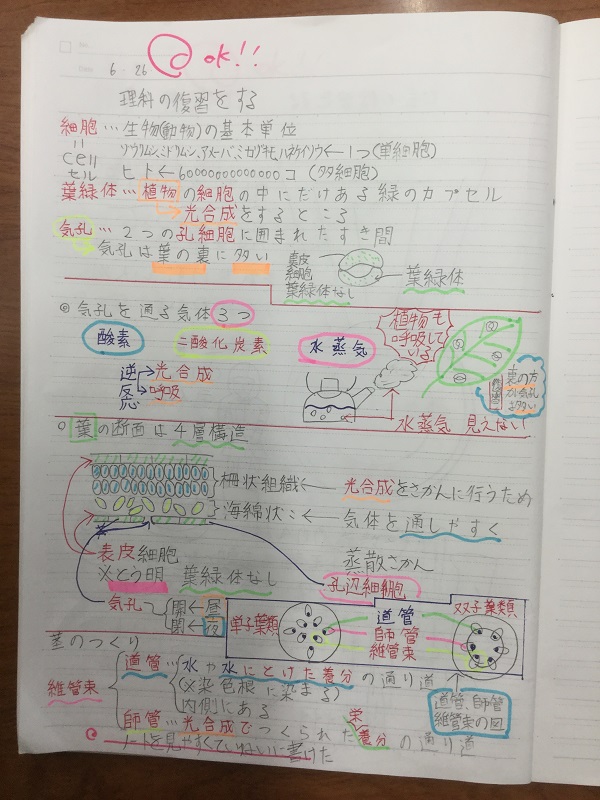 6・26 ok!!
理科の復習をする
細胞…生物(動物)の基本単位
=
cell
セル
ゾウリムシ、ミドリムシ、アメーバ、ミカヅキモ、ハネケイソウ←1つ(単細胞)
ヒト←6000000000000コ(多細胞)
葉緑体…植物の細胞の中にだけある緑のカプセル
光合成をするところ
気孔…2つの孔細胞に囲まれたすき間
気孔は葉の裏に多い
真皮
細胞
葉緑体なし
葉緑体
◎気孔を通る気体3つ
酸素
二酸化炭素
水蒸気
植物も
呼吸して
いる
逆
反応
光合成
呼吸
裏の方
が気孔
は多い
水蒸気 見えない
○葉の断面は4層構造
柵状組織←光合成をさかんに行うため
海綿状〃←気体を通しやすく
表皮細胞
※とう明 葉緑体なし
蒸散さかん
孔辺細胞
気孔
開←昼
閉←夜
単子葉類
道管
師管
維管束
双子葉類
茎のつくり
維管束
道管…水や水にとけた養分の通り道
(※染色根に染まる)
内側にある
師管…光合成でつくられた栄養分の通り道
道管、師管
維管束の図
ノートを見やすくていねいに書けた